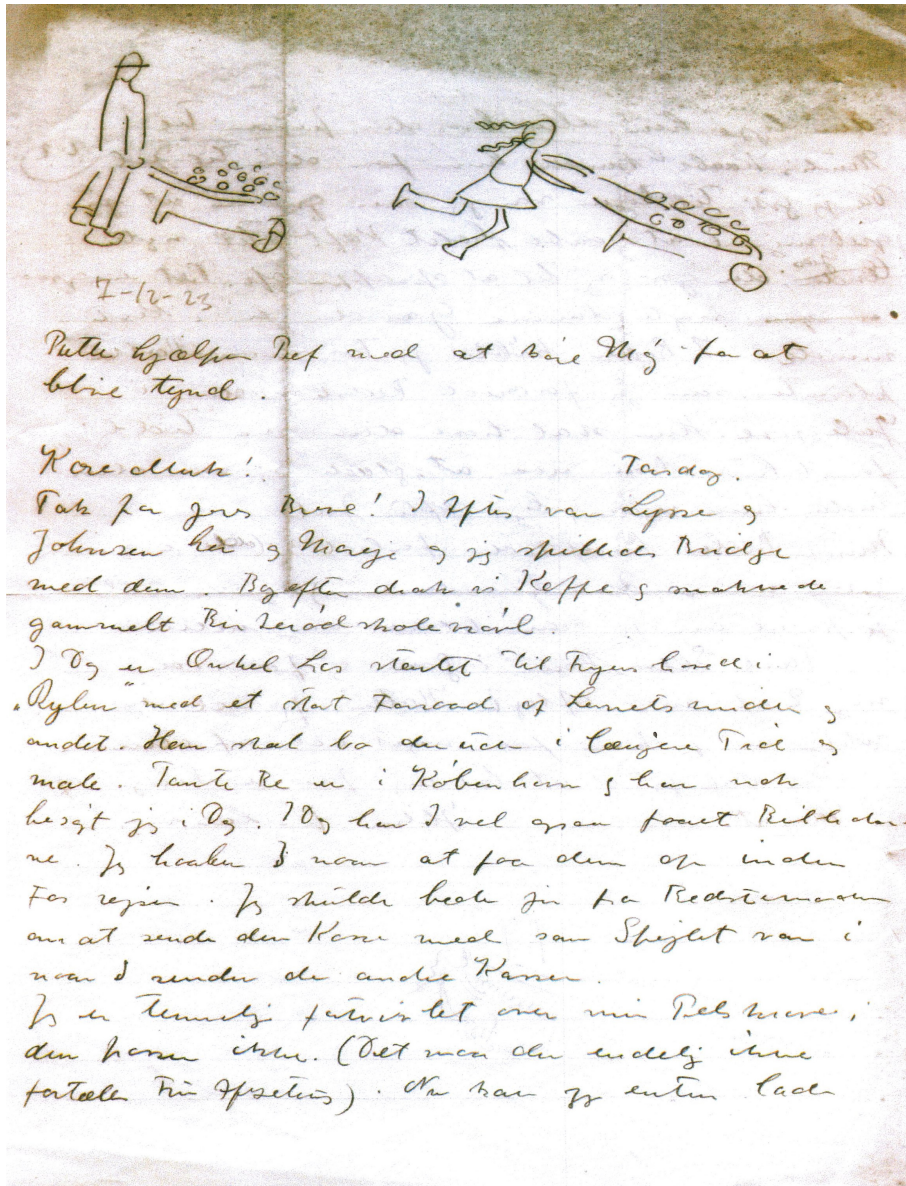 7-12-23
Putte hjælper Bef med at køre Møg for at
blive tynd.
Kære Muk! Torsdag.
Tak for jeres Breve! I Aftes var Lysse og
Johnsen her og Marie og jeg spillede Bridge
med dem. Bag efter drak vi Kaffe og snakkede
gammelt Birkerød skole
I Dag er Onkel Las startet til Fyns hoved i
„Rylen" med et stort Forraad af Lerretsruller og
andet. Han skal bo derude i længere Tid og
male. Tante Be er i København og har nok
besøgt jer i Dag. I Dag har I vel ogsaa faaet Billeder
ne. Jeg haaber I naar at faa dem op inden
Far rejser. Jeg skulde bede jer fra Bedstemoder
om at sende den Kasse med som Spejlet var i
naar I sender de andre Kasser.
Jeg er temmelig fortvivlet over min Pelskrave,
den passer ikke. (Det maa du endelig ikke
fortælle Frú). Nu kan jeg enten lade